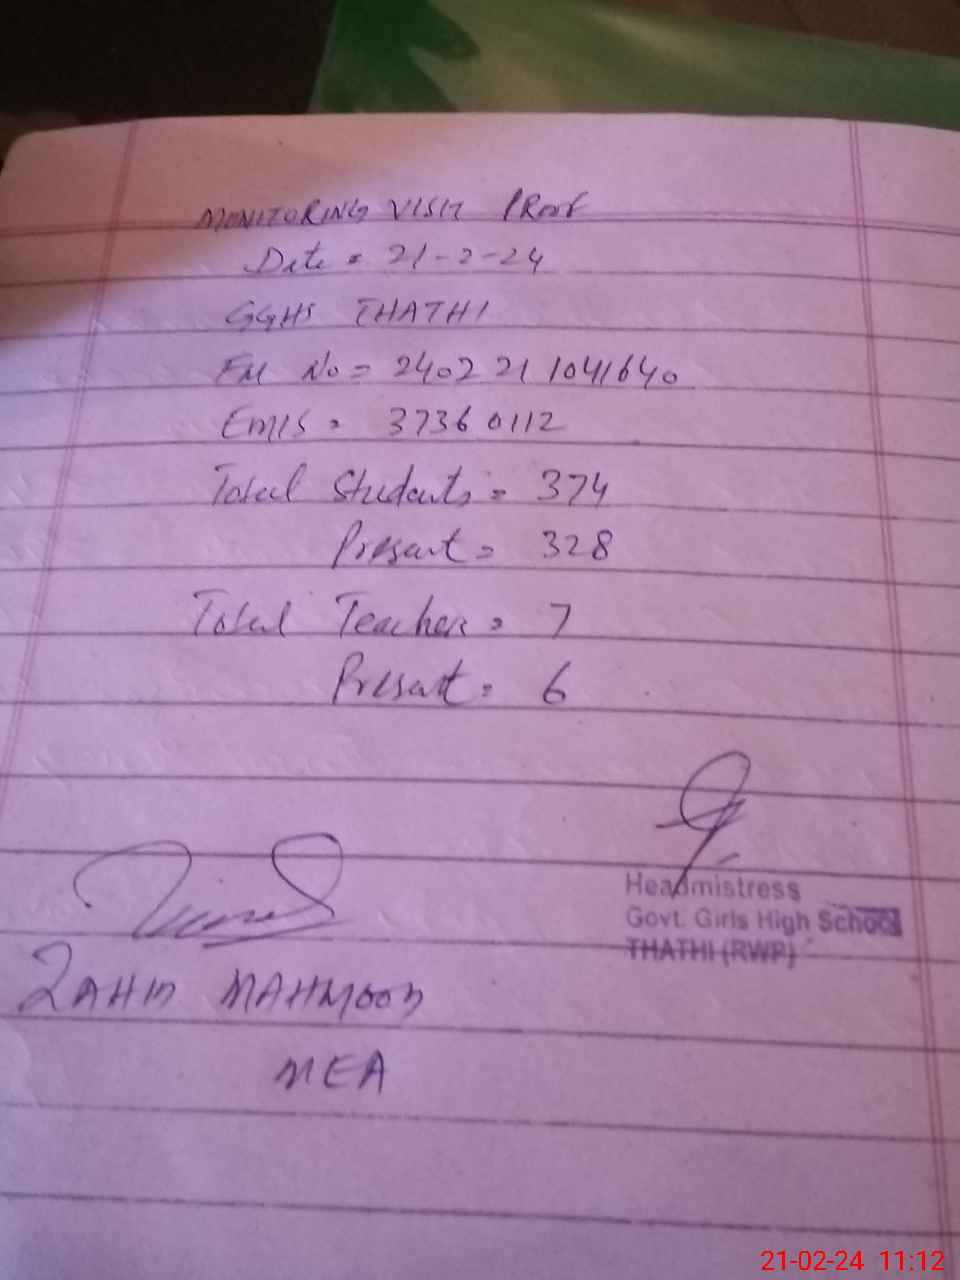 MONITORING VISIT PROOF
Date = 21-2-24
GGHS THATHI
FM No = 2402 21 1041640
EMIS = 37360112
Total Students = 374
Present = 328
Total Teachers = 7
Present = 6
Headmistress
Govt. Girls High School
THATHI (RWP)
MAHMOOD
MEA
21-02-24 11:12